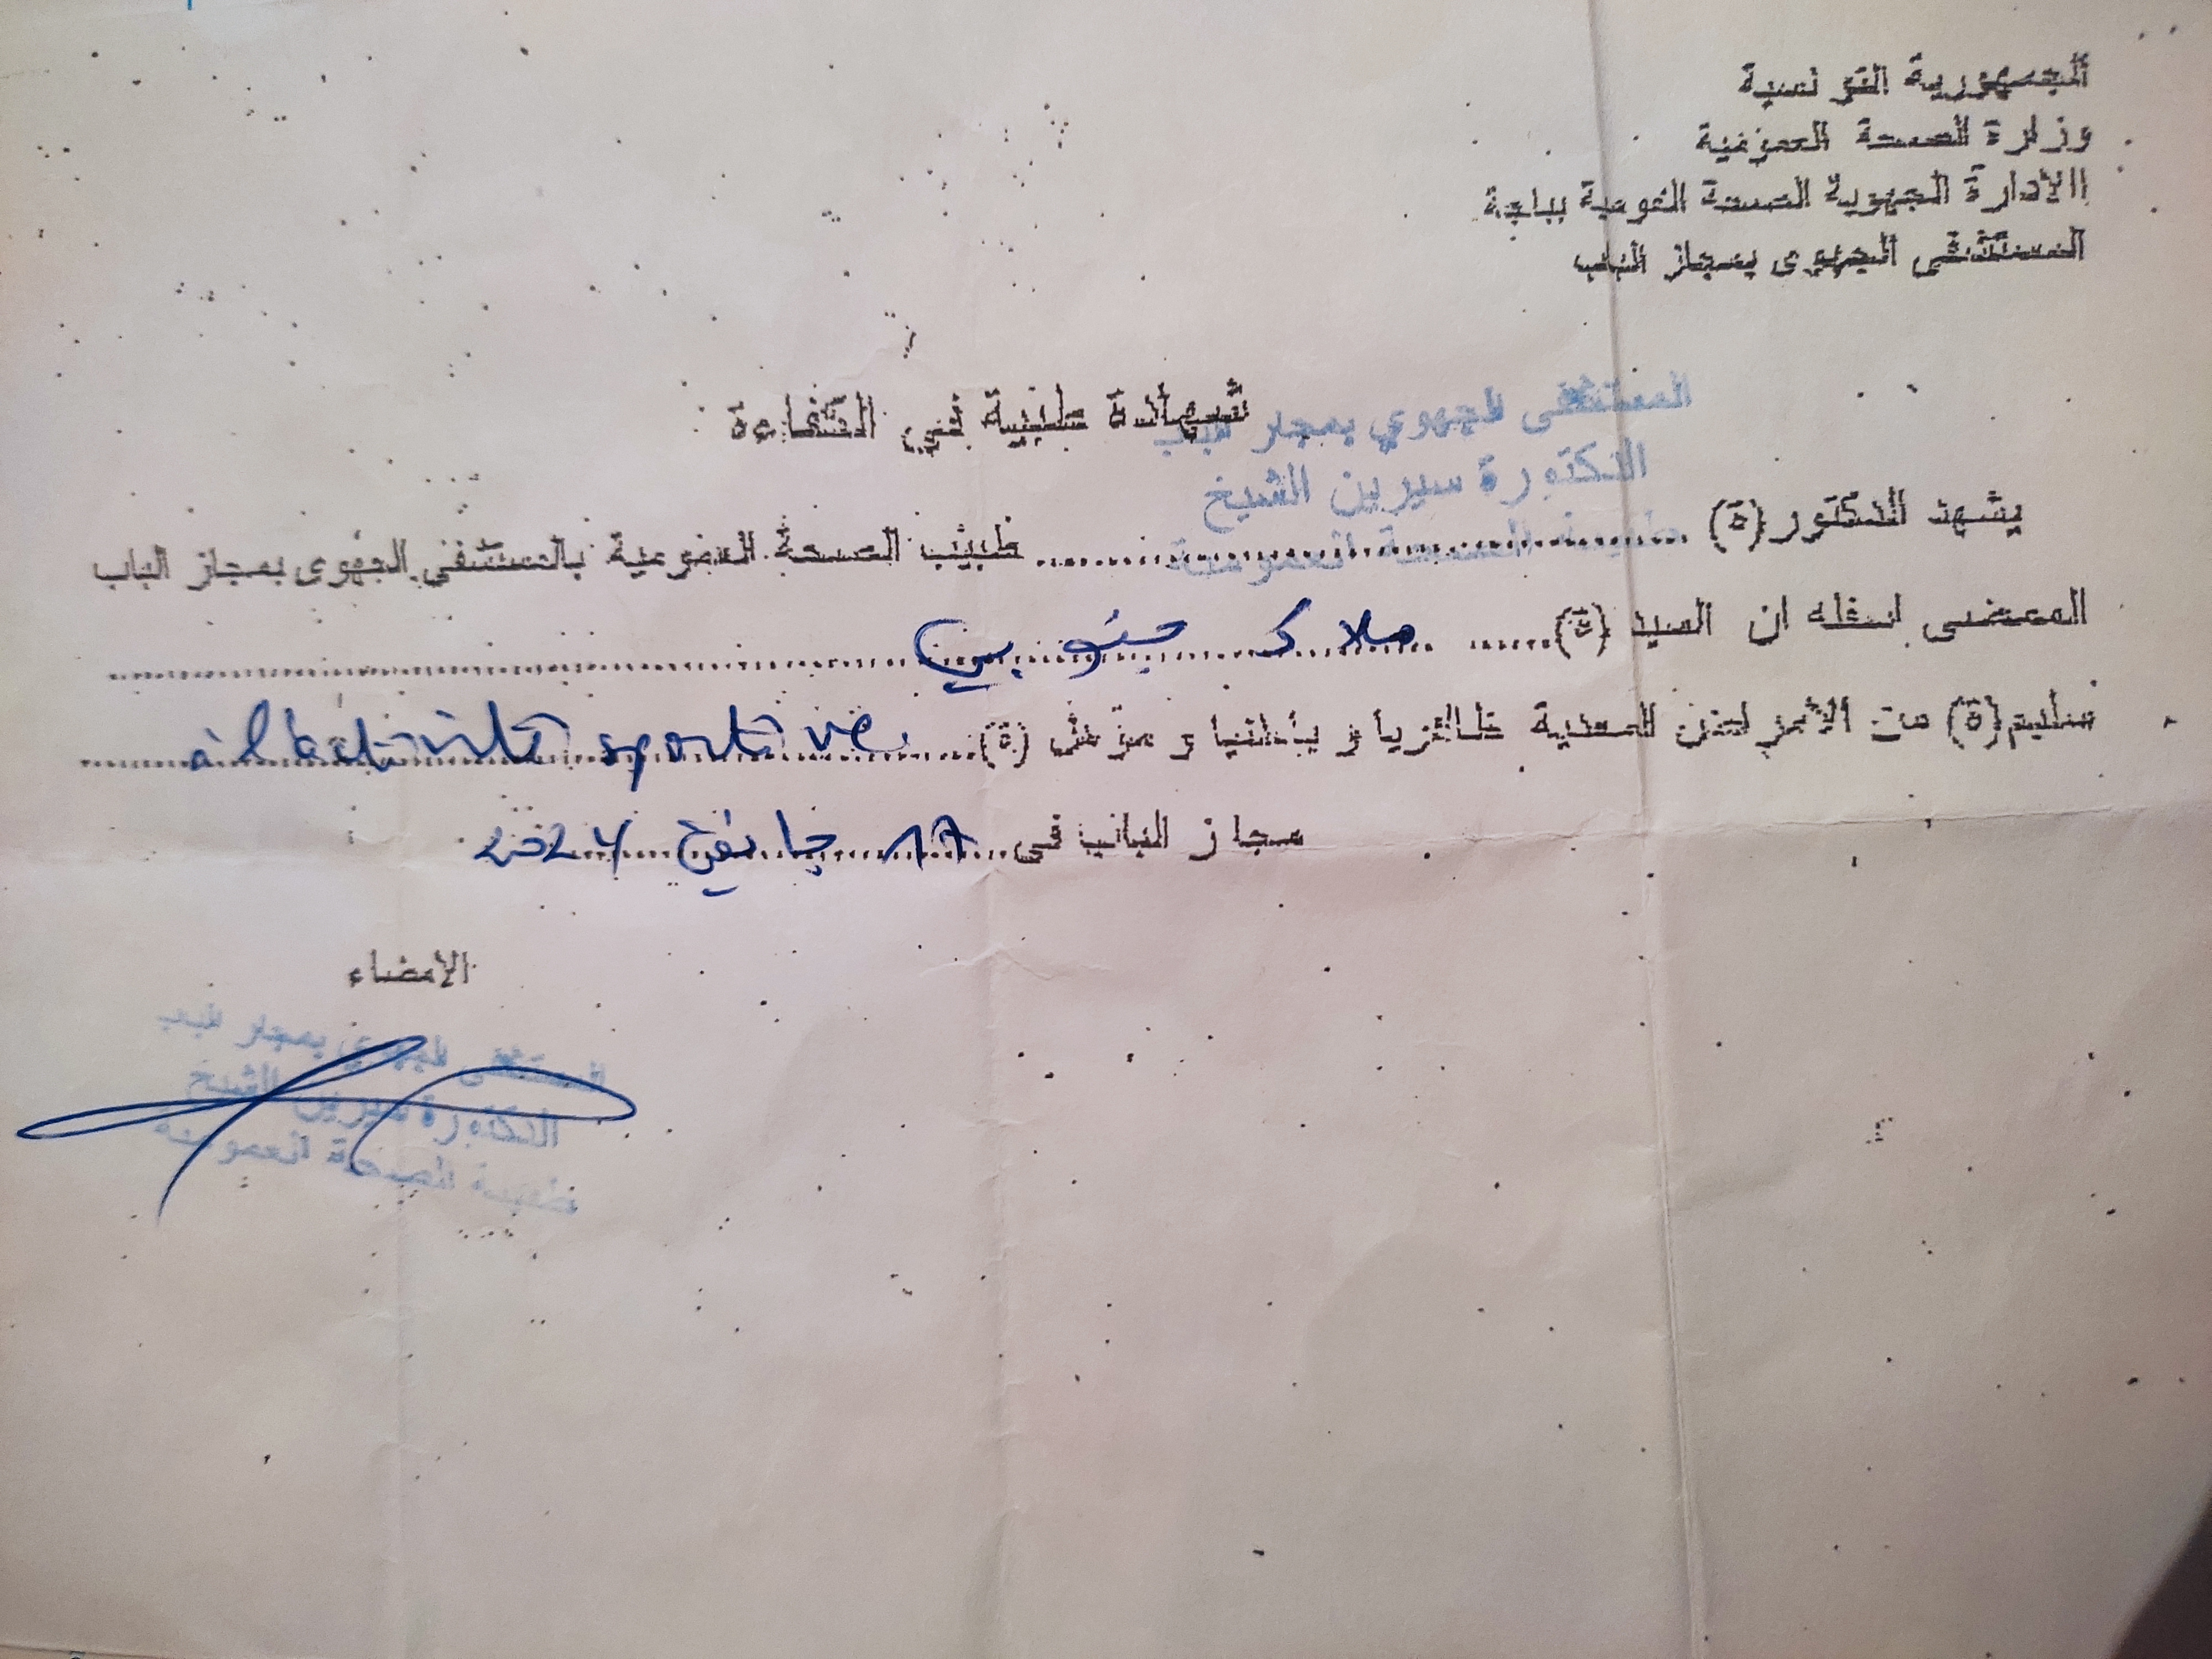 الجمهورية التونسية
وزارة الصحة العمومية
الادارة الجهوية للصحة العمومية بباجة
المستشفى الجهوى بمجاز الباب
شهادة طبية في الكفاءة
المستشفى الجهوي بمجاز الباب
الدكتورة سيرين الشيخ
طبيبة الصحة العمومية
يشهد الدكتور(ة) .......... طبيب الصحة العمومية بالمستشفى الجهوى بمجاز الباب
الممضى اسفله ان السيد (ة)...... ملاك جنوبي
سليم(ة) من الأمراض المعدية حاليا و بدنيا و مؤهل (ة)... à l'activité sportive.
مجاز الباب فى 17 جانفي 2024
الامضاء
المستشفى الجهوي بمجاز الباب
الدكتورة سيرين الشيخ
طبيبة الصحة العمومية